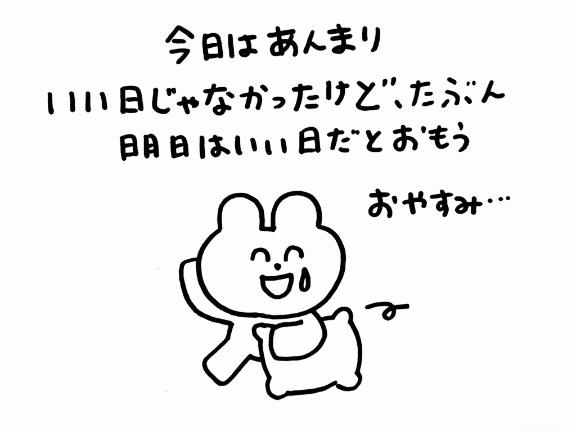 今日はあんまり
いい日じゃなかったけど、たぶん
明日はいい日だとおもう
おやすみ…